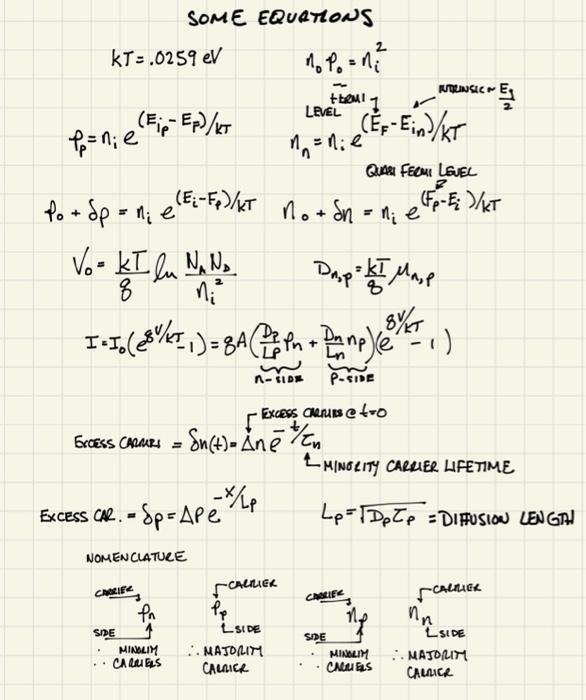 SOME EQUATIONS
kT = .0259 eV
n₀ p₀ = nᵢ²
FERMI LEVEL
INTRINSIC ~ Eg/2
pₚ = nᵢ e^(Eip - EF)/kT
nₙ = nᵢ e^(EF - Ein)/kT
QUASI FERMI LEVEL
p₀ + δp = nᵢ e^(Ei - Fp)/kT
n₀ + δn = nᵢ e^(Fp - Ei)/kT
V₀ = kT/q ln NA ND/nᵢ²
Dn,p = kT/q μn,p
I = I₀(e^qV/kT - 1) = qA(Dp/Lp pn + Dn/Ln np)(e^qV/kT - 1)
n-SIDE P-SIDE
EXCESS CARRIERS @ t=0
EXCESS CARRIERS = δn(t) = Δn e^-t/τn
MINORITY CARRIER LIFETIME
EXCESS CAR. = δp = ΔP e^-x/Lp
Lp = √Dp τp = DIFFUSION LENGTH
NOMENCLATURE
CARRIER
pn
SIDE
∴ MINORITY CARRIERS
CARRIER
pp
SIDE
∴ MAJORITY CARRIER
CARRIER
np
SIDE
∴ MINORITY CARRIERS
CARRIER
nn
SIDE
∴ MAJORITY CARRIER